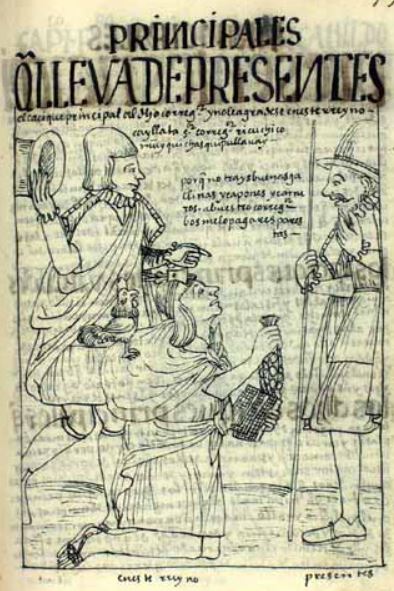 PRINCIPALES
Q̃LLEVADEPRESENTES
el cacique principal al dho correg.or y no le agradese en este rreyno -
cayllata s.or correg.or ricuchico
muy qui chasquipullauay
porq̃ no trays buenas ga
llinas y capones y carne
ros a bues tro correg.or
bos me lo pagares
tas -
en este rreyno
presentes